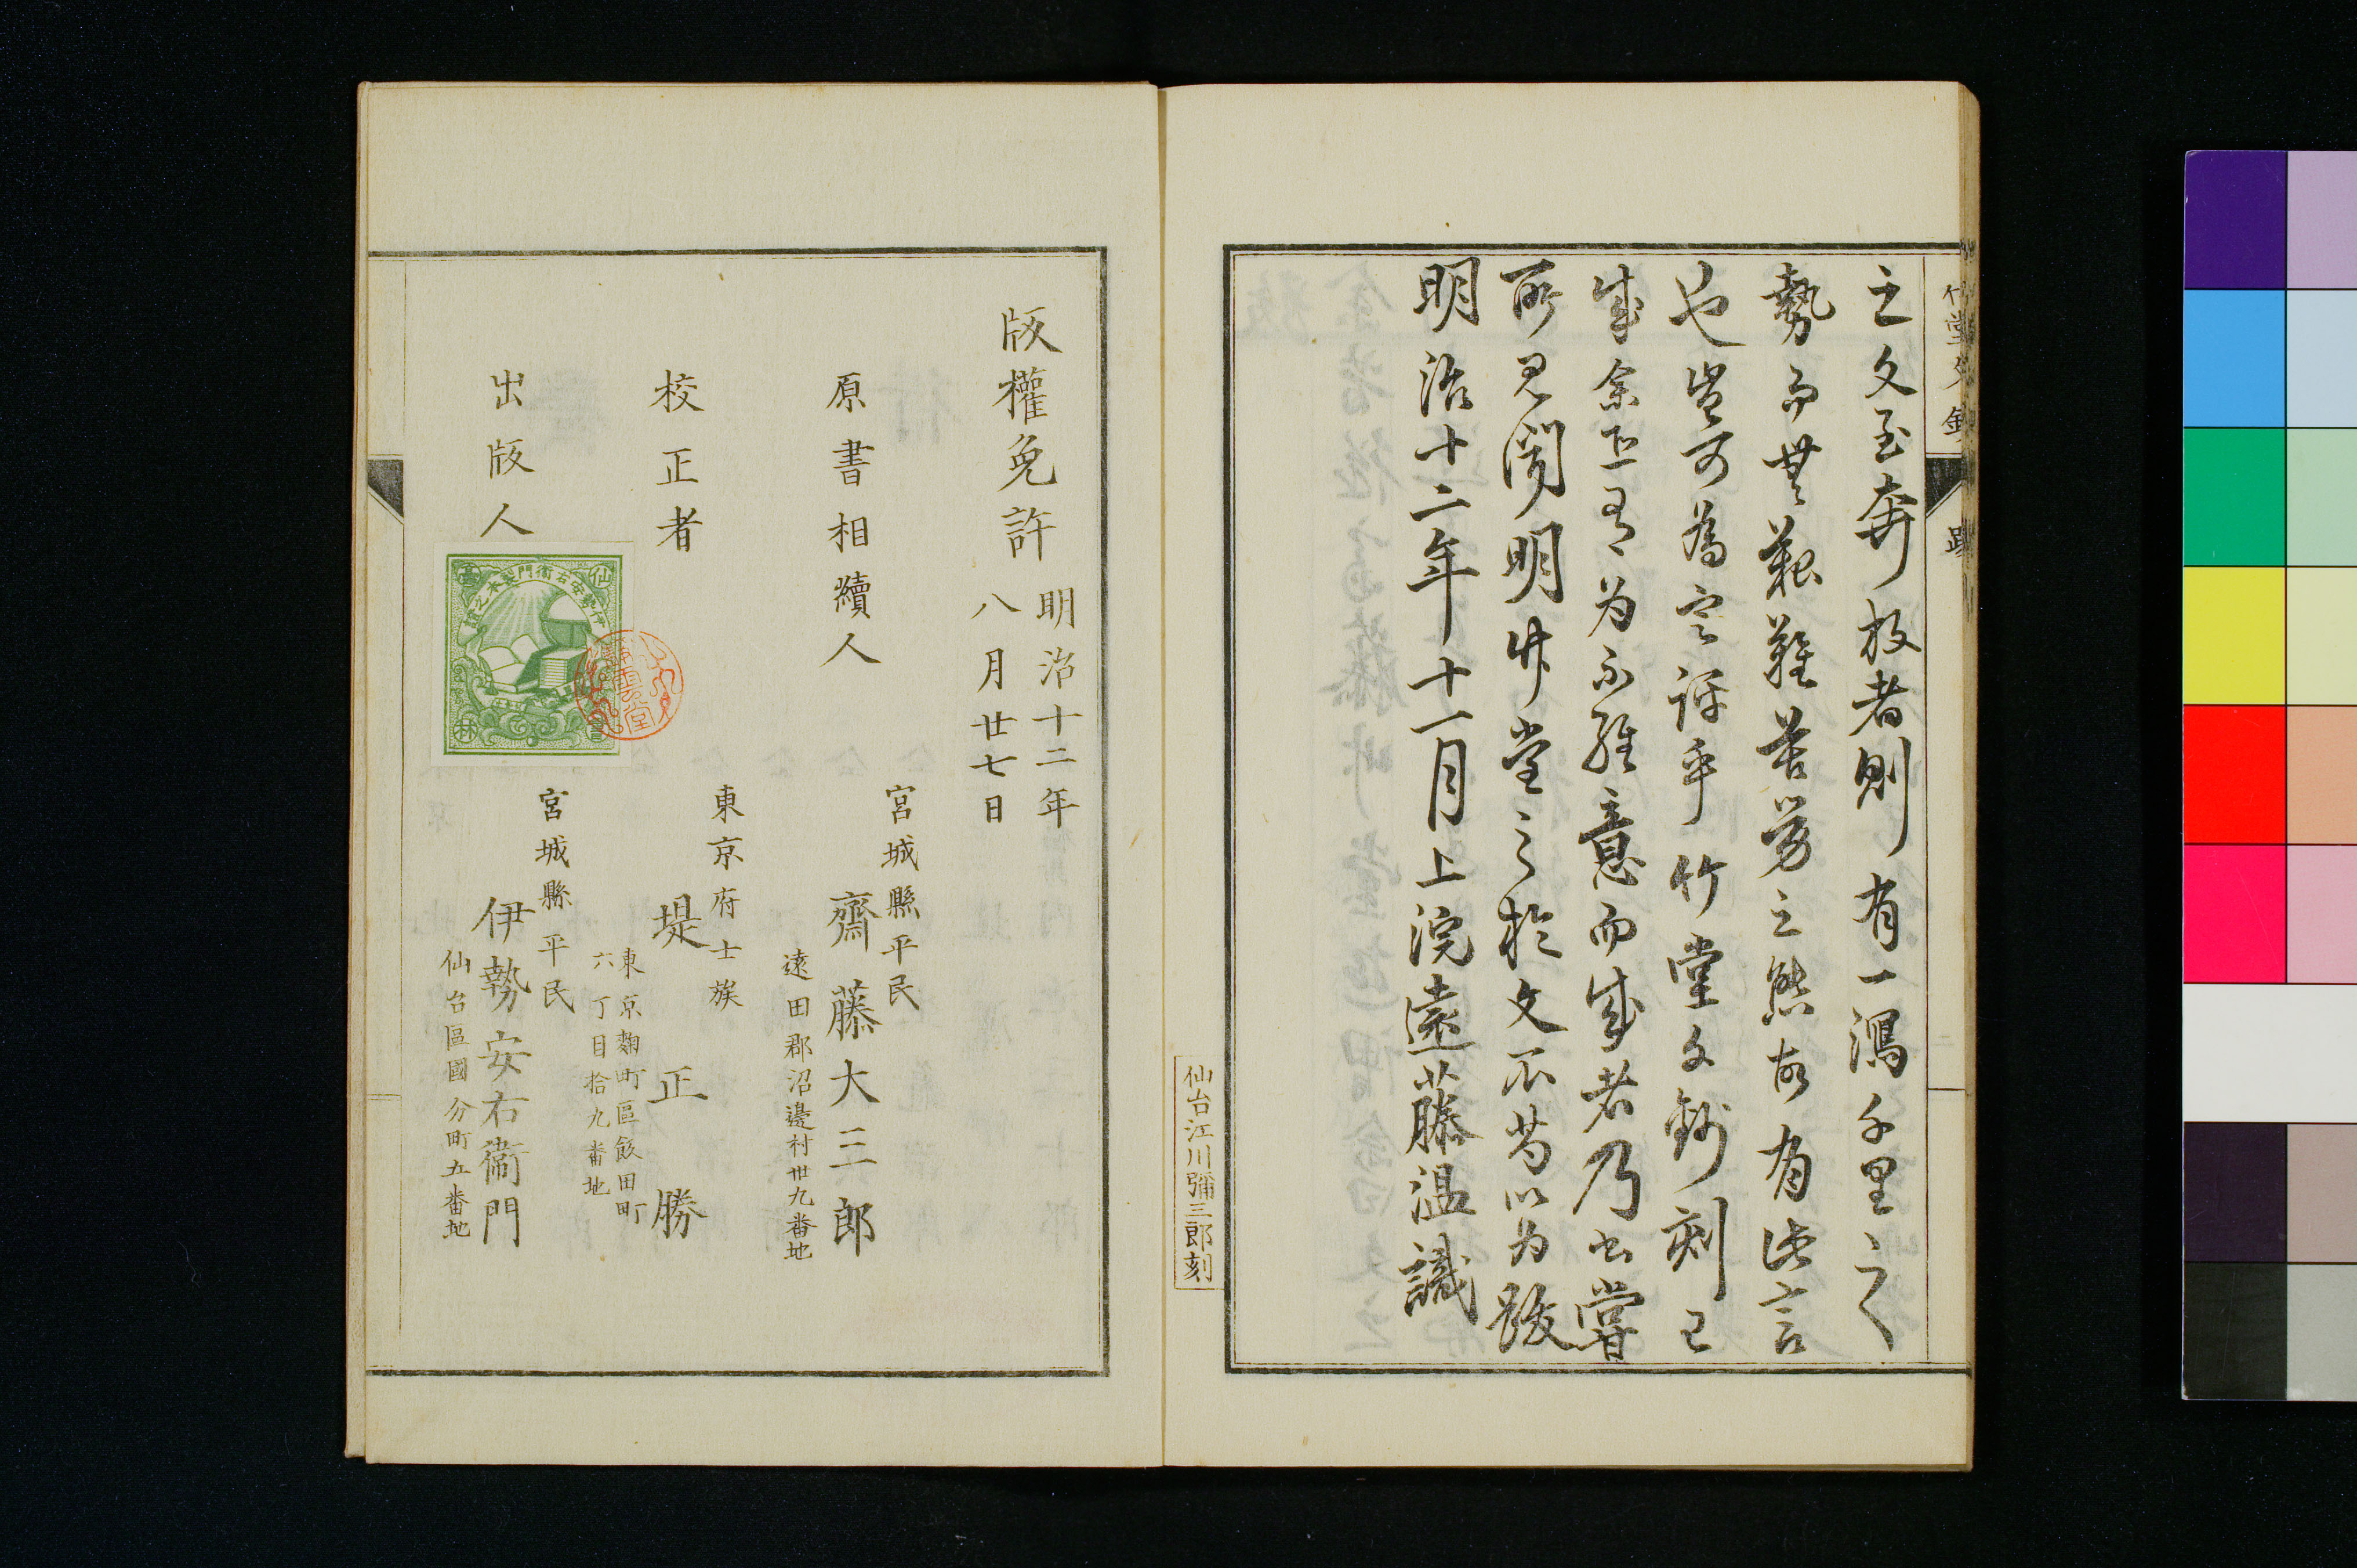 竹堂文鈔
跋
之文至奔放者則有一瀉千里之
勢而無艱難苦勞之態故有此言
也豈可為定評乎竹堂文鈔刻已
成余亟有为不經意而成者乃書嘗
所見聞明竹堂之於文不苟以为跋
明治十二年十一月上浣遠藤温識
仙台江川彌三郎刻
版權免許
明治十二年
八月廿七日
原書相續人
宮城縣平民
齋藤大三郎
遠田郡沼邊村卅九番地
校正者
東京府士族
堤正勝
東京麹町區飯田町
六丁目拾九番地
出版人
宮城縣平民
伊勢安右衞門
仙台區國分町五番地
仙臺書林
伊勢安右衞門製本之證